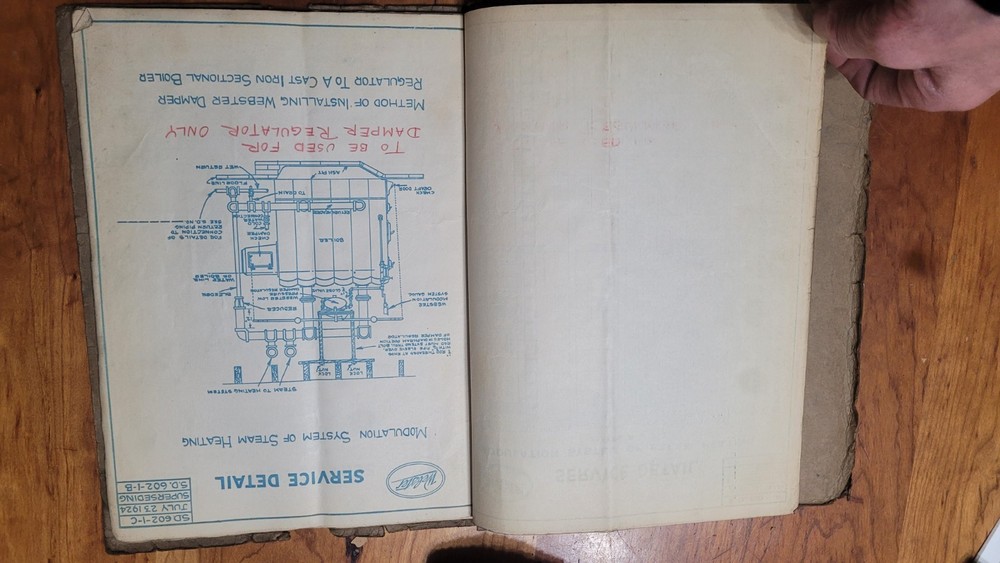 Webster
SERVICE DETAIL
SD 602-1-C
JULY 23 1924
SUPERSEDING
S.D. 602-1-B
MODULATION SYSTEM OF STEAM HEATING
STEAM TO HEATING SYSTEM
LOCK NUT
LOCK NUT
REDUCER
BLEEDER
WATER LINE OF BOILER
WEBSTER
MODULATION
SYSTEM GAUGE
WEBSTER LOW
PRESSURE
DAMPER REGULATOR
GLOBE VALVE
BOILER
CHECK
DAMPER
FOR DETAILS OF
CONNECTION TO
RETURN PIPING
SEE S.D. NO.
RETURN HEADER
CHECK
DRAFT DOOR
TO DRAIN
FLOOR LINE
WET RETURN
ASH PIT
TO BE USED FOR
DAMPER REGULATOR ONLY
METHOD OF INSTALLING WEBSTER DAMPER
REGULATOR TO A CAST IRON SECTIONAL BOILER
SERVICE DETAIL